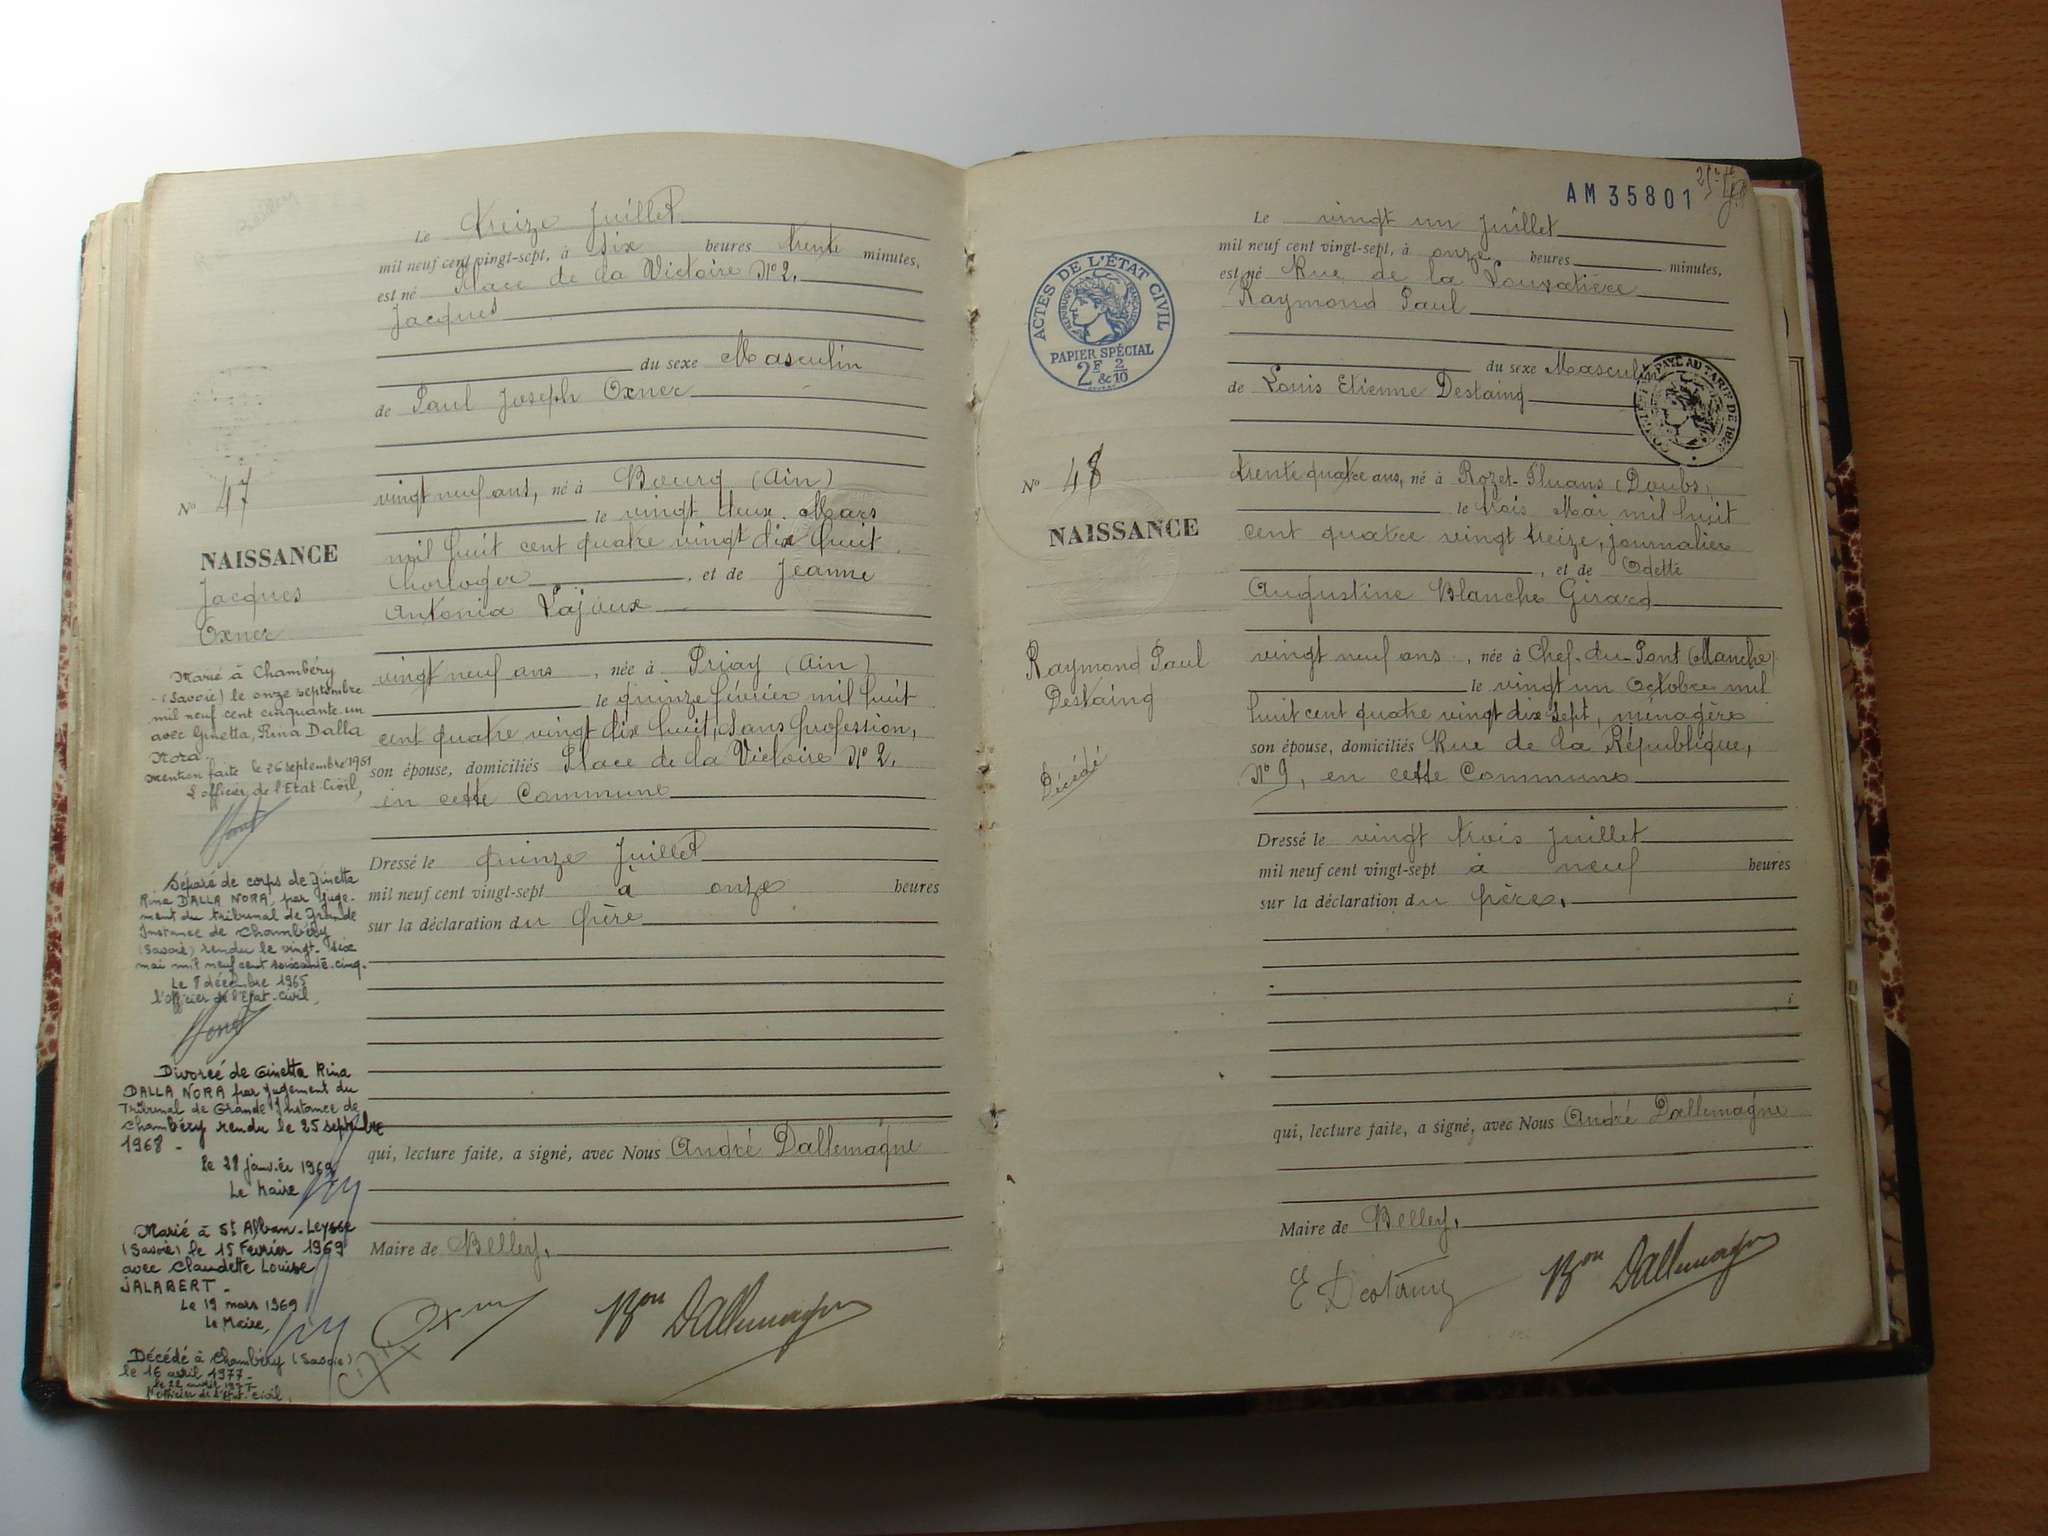 Le treize Juillet
mil neuf cent vingt-sept, à six heures trente minutes,
est né Place de la Victoire N° 2,
Jacques
du sexe Masculin
de Paul Joseph Oxner
N° 47
vingt neuf ans, né à Bourg (Ain)
le vingt deux Mars
NAISSANCE
mil huit cent quatre vingt dix huit
horloger, et de Jeanne
Jacques
Antonia Lajoux
Oxner
vingt neuf ans, née à Priay (Ain)
le quinze février mil huit
cent quatre vingt dix huit, sans profession,
son épouse, domiciliés Place de la Victoire N° 2,
en cette Commune
Dressé le quinze Juillet
mil neuf cent vingt-sept à onze heures
sur la déclaration du père
qui, lecture faite, a signé, avec Nous André Dallemagne
Maire de Belley,
Oxner
Bon Dallemagne
Marié à Chambéry
(Savoie) le onze septembre
mil neuf cent cinquante un
avec Ginetta, Rina Dalla
Nora.
Mention faite le 26 septembre 1951
L'officier de l'Etat-Civil,
Séparé de corps de Ginetta
Rina DALLA NORA, par juge-
ment du tribunal de Grande
Instance de Chambéry
(Savoie) rendu le vingt-six
mai mil neuf cent soixante-cinq.
Le 8 décembre 1965
l'officier de l'Etat-Civil,
Divorcé de Ginetta Rina
DALLA NORA par jugement du
Tribunal de Grande Instance de
Chambéry rendu le 25 septembre
1968 -
le 28 janvier 1969
Le Maire
Marié à St Alban-Leysse
(Savoie) le 15 Février 1969
avec Claudette Louise
JALABERT -
Le 19 mars 1969
Le Maire,
Décédé à Chambéry (Savoie)
le 16 avril 1977 -
le 22 avril 1977
l'officier de l'Etat-Civil,
AM 35801
Le vingt un Juillet
mil neuf cent vingt-sept, à onze heures minutes,
est né Rue de la Louvatière
Raymond Paul
ACTES DE L'ÉTAT CIVIL
RÉPUBLIQUE FRANÇAISE
PAPIER SPÉCIAL
2F & 2/10
du sexe Masculin
de Louis Etienne Destaing
N° 48
trente quatre ans, né à Rozet-Fluans (Doubs)
le trois Mai mil huit
NAISSANCE
cent quatre vingt treize, journalier
, et de Odette
Augustine Blanche Girard
Raymond Paul
Destaing
Décédé
vingt neuf ans, née à Chef-du-Pont (Manche)
le vingt un Octobre mil
huit cent quatre vingt dix sept, ménagère
son épouse, domiciliés Rue de la République,
N° 9, en cette Commune
Dressé le vingt trois Juillet
mil neuf cent vingt-sept à neuf heures
sur la déclaration du père,
qui, lecture faite, a signé, avec Nous André Dallemagne
Maire de Belley,
E Destaing
Bon Dallemagne